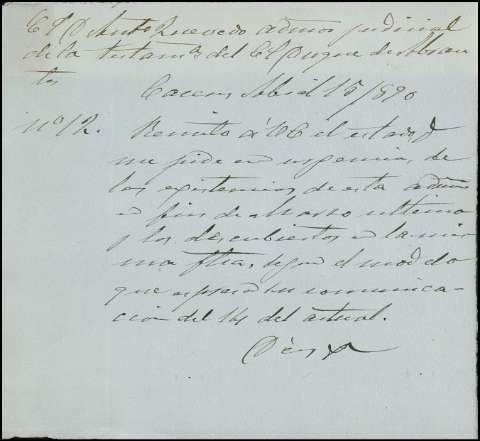 El D. Anto Quevedo admor judicial
de la testama del El Duque de Abran
tes
Caceres Abril 15/890
No 12. Remito á VE el estado q
me pide con urgencia, de
las existencias de esta admon
en fin de Marzo ultimo
y los descubiertos en la mis-
ma fha, segun el modelo
que espresa su comunica-
cion del 14 del actual.